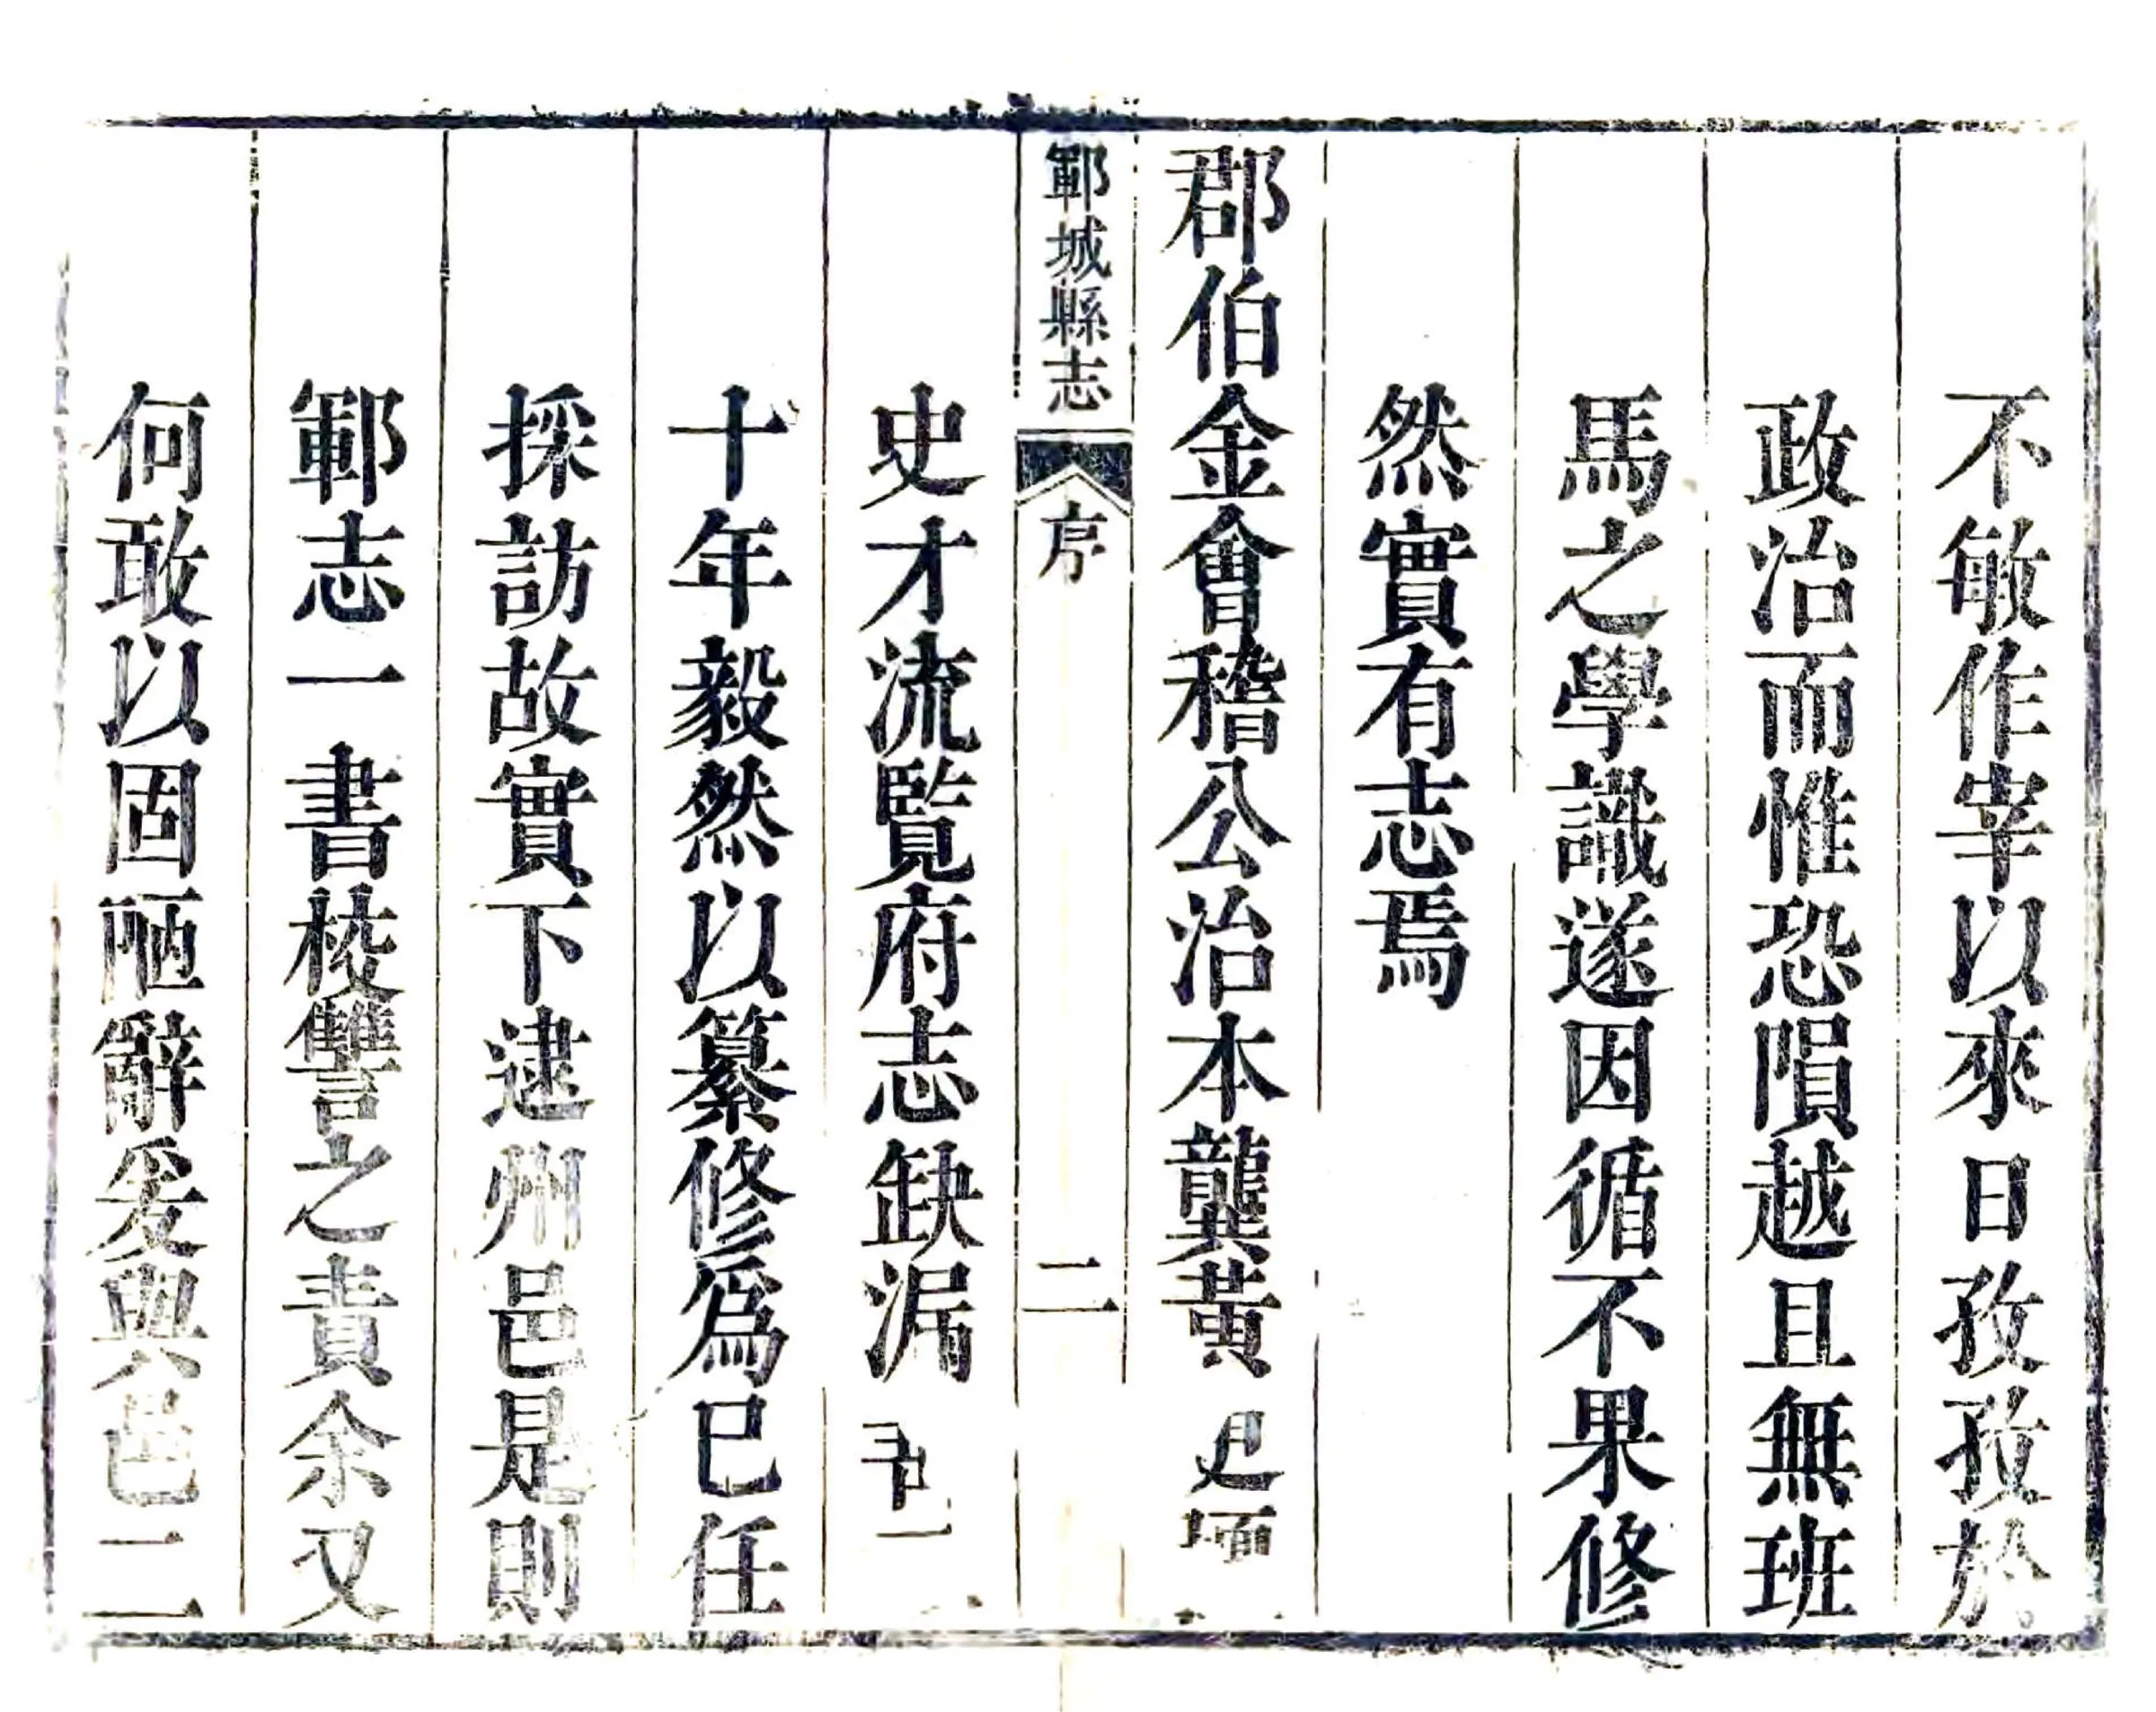 不敏作宰以來日孜孜於
政治而惟恐隕越且無班
馬之學識遂因循不果修
然實有志焉
郡伯金會稽公治本龔黃
鄆城縣志 序 二
史才流覽府志缺漏
十年毅然以纂修爲已任
採訪故實下逮州邑是則
鄆志一書校讐之責余又
何敢以固陋辭爰與邑二